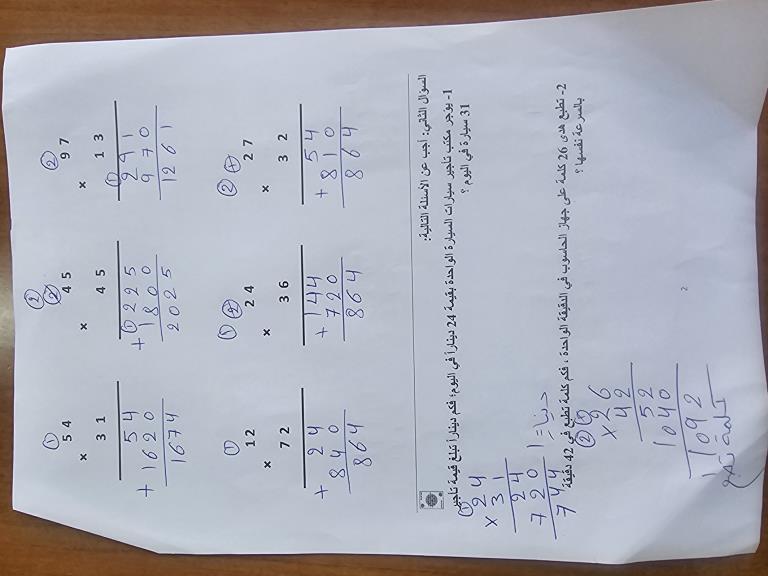 ① ② ②
54 ② 45 97
× 31 × 45 × 13
54 ① 225 ① 291
+ 1620 + 1800 970
1674 2025 1261
① ① ② ② ①
12 24 27
× 72 × 36 × 32
24 144 54
+ 840 + 720 + 810
864 864 864
السؤال الثاني: أجب عن الأسئلة التالية:
1- يؤجر مكتب تأجير سيارات السيارة الواحدة بقيمة 24 ديناراً في اليوم؛ فكم ديناراً تبلغ قيمة تأجير
31 سيارة في اليوم ؟
①
24
× 31
24
720
744
2- تطبع هدى 26 كلمة على جهاز الحاسوب في الدقيقة الواحدة ، فكم كلمة تطبع في 42 دقيقة
بالسرعة نفسها ؟
② ①
26
× 42
52
1040
1092
كلمة تطبع
2